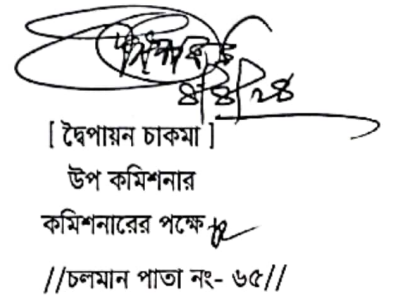 ৪/৪/২৪
[ দ্বৈপায়ন চাকমা ]
উপ কমিশনার
কমিশনারের পক্ষে
//চলমান পাতা নং- ৬৫//